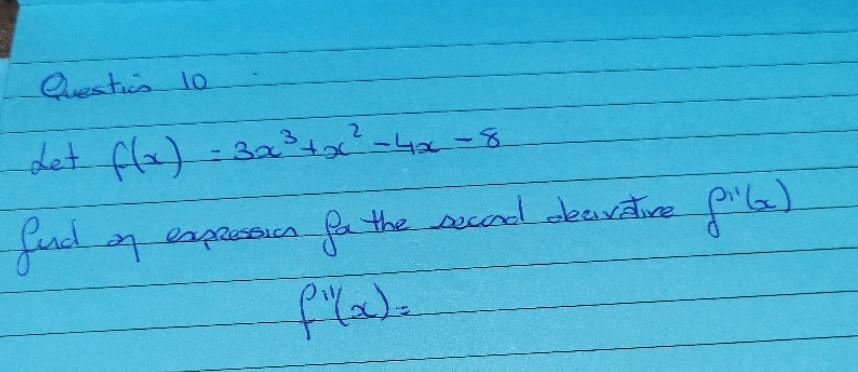 Question 10
Let f(x) = 3x³+x²-4x-8
find an expression for the second derivative f''(x)
f''(x)=